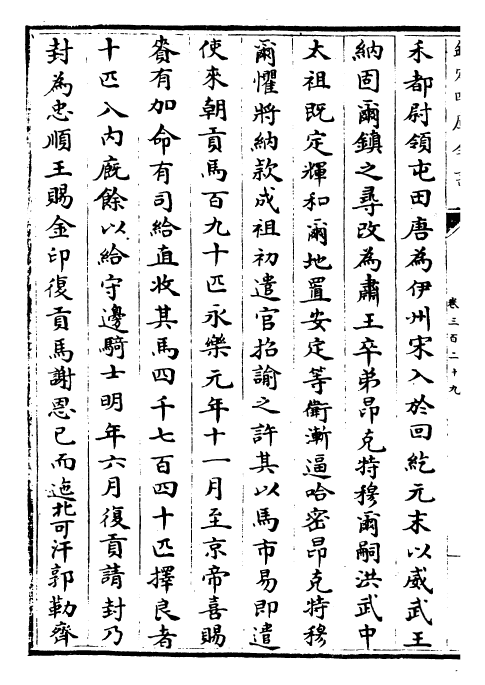 欽定四庫全書
卷三百二十九
禾都尉領屯田唐為伊州宋入於回紇元末以威武王
納固爾鎮之尋改為肅王卒弟昂克特穆爾嗣洪武中
太祖既定輝和爾地置安定等衛漸逼哈密昂克特穆
爾懼將納款成祖初遣官招諭之許其以馬市易即遣
使來朝貢馬百九十匹永樂元年十一月至京帝喜賜
賚有加命有司給直收其馬四千七百四十匹擇良者
十匹入內廐餘以給守邊騎士明年六月復貢請封乃
封為忠順王賜金印復貢馬謝恩已而迤北可汗郭勒齊